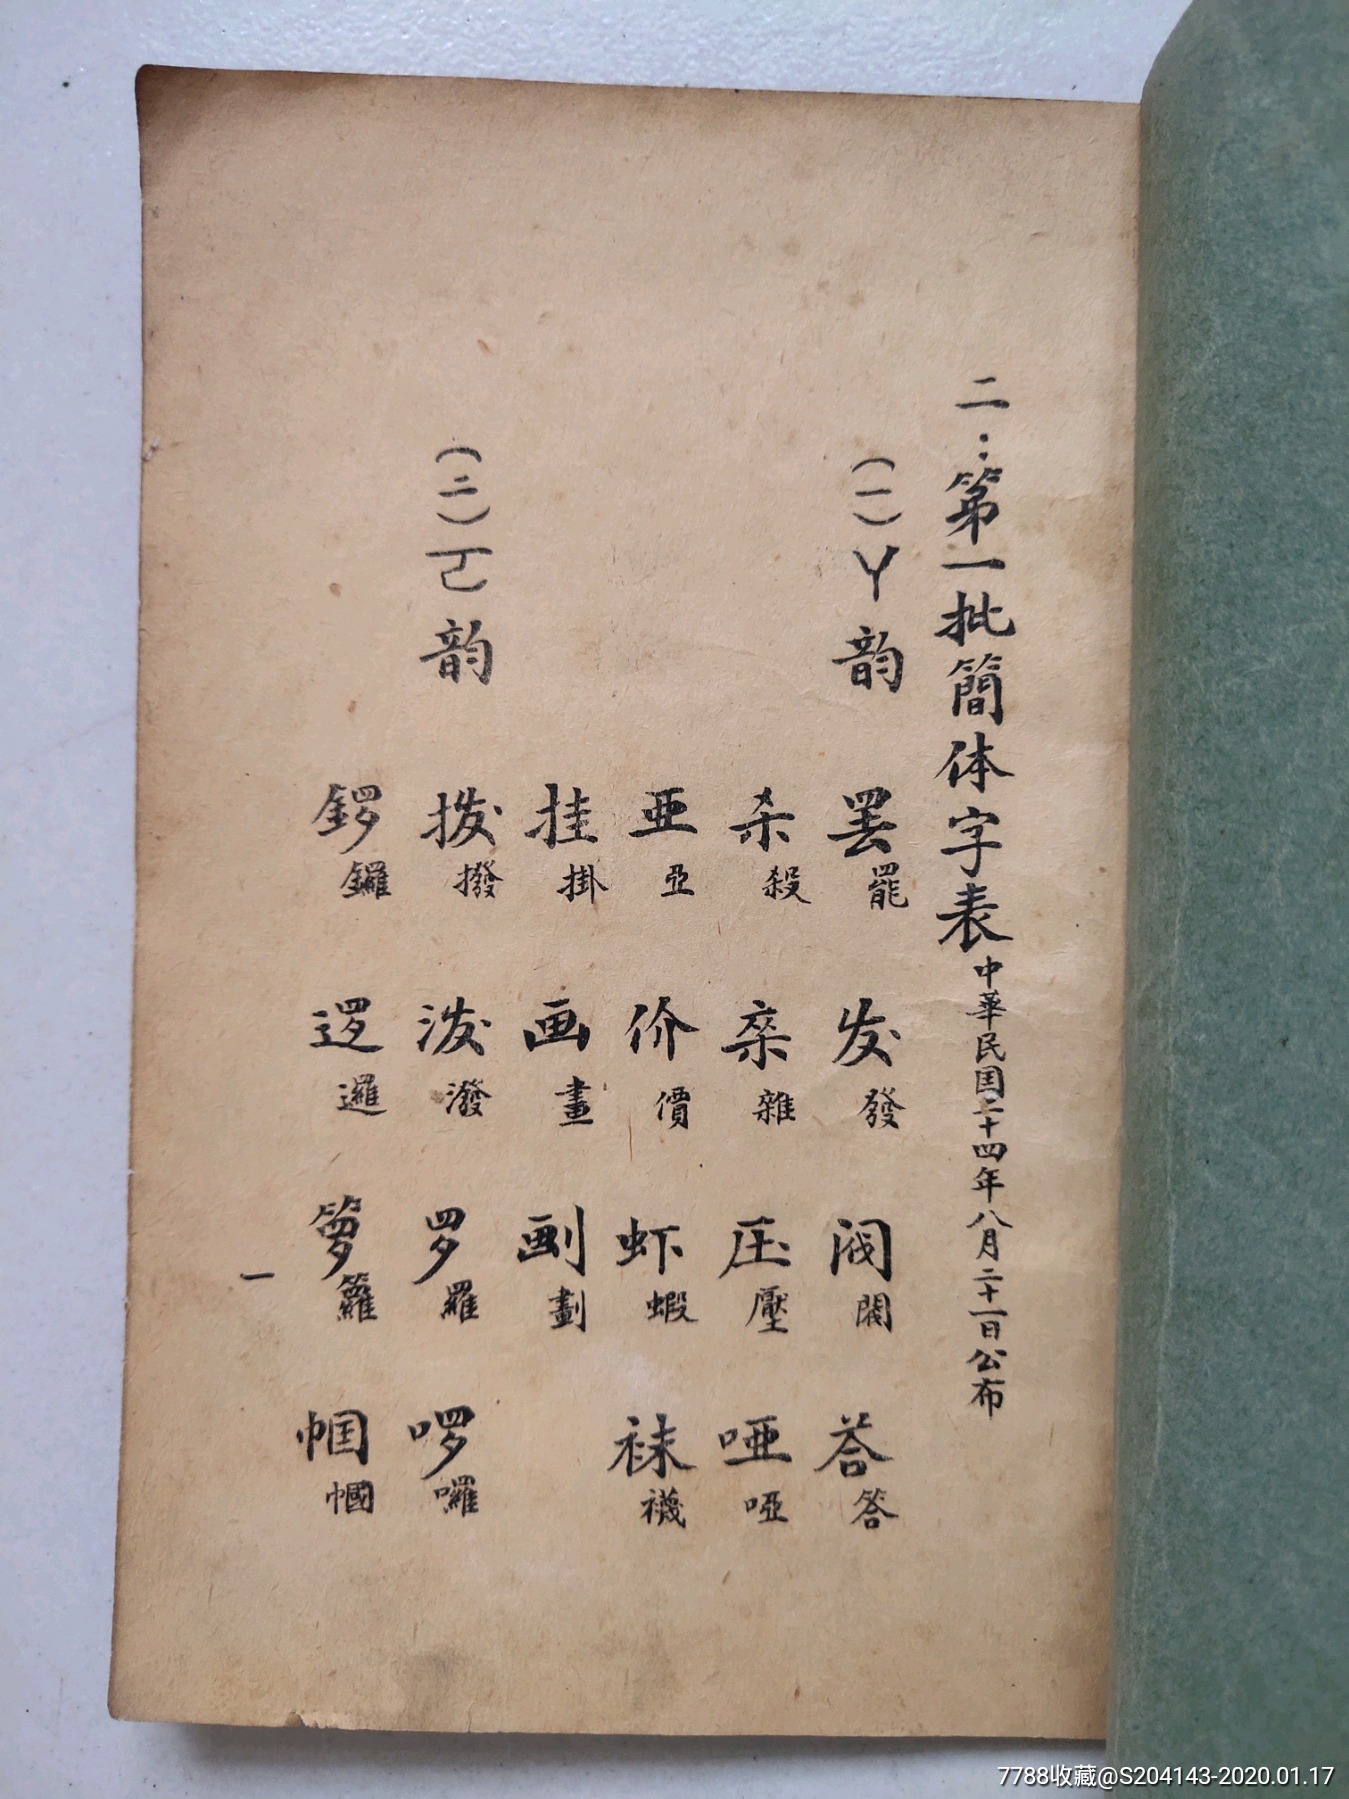 二：第一批簡体字表 中華民囯二十四年八月二十一日公布
（一）ㄚ韵
罢罷 发發 阀閥 荅答
杀殺 杂雜 压壓 哑啞
亚亞 价價 虾蝦 袜襪
挂掛 画畫 划劃
（二）ㄛ韵
拨撥 泼潑 罗羅 啰囉
锣鑼 逻邏 箩籮 帼幗
一
7788收藏@S204143-2020.01.17